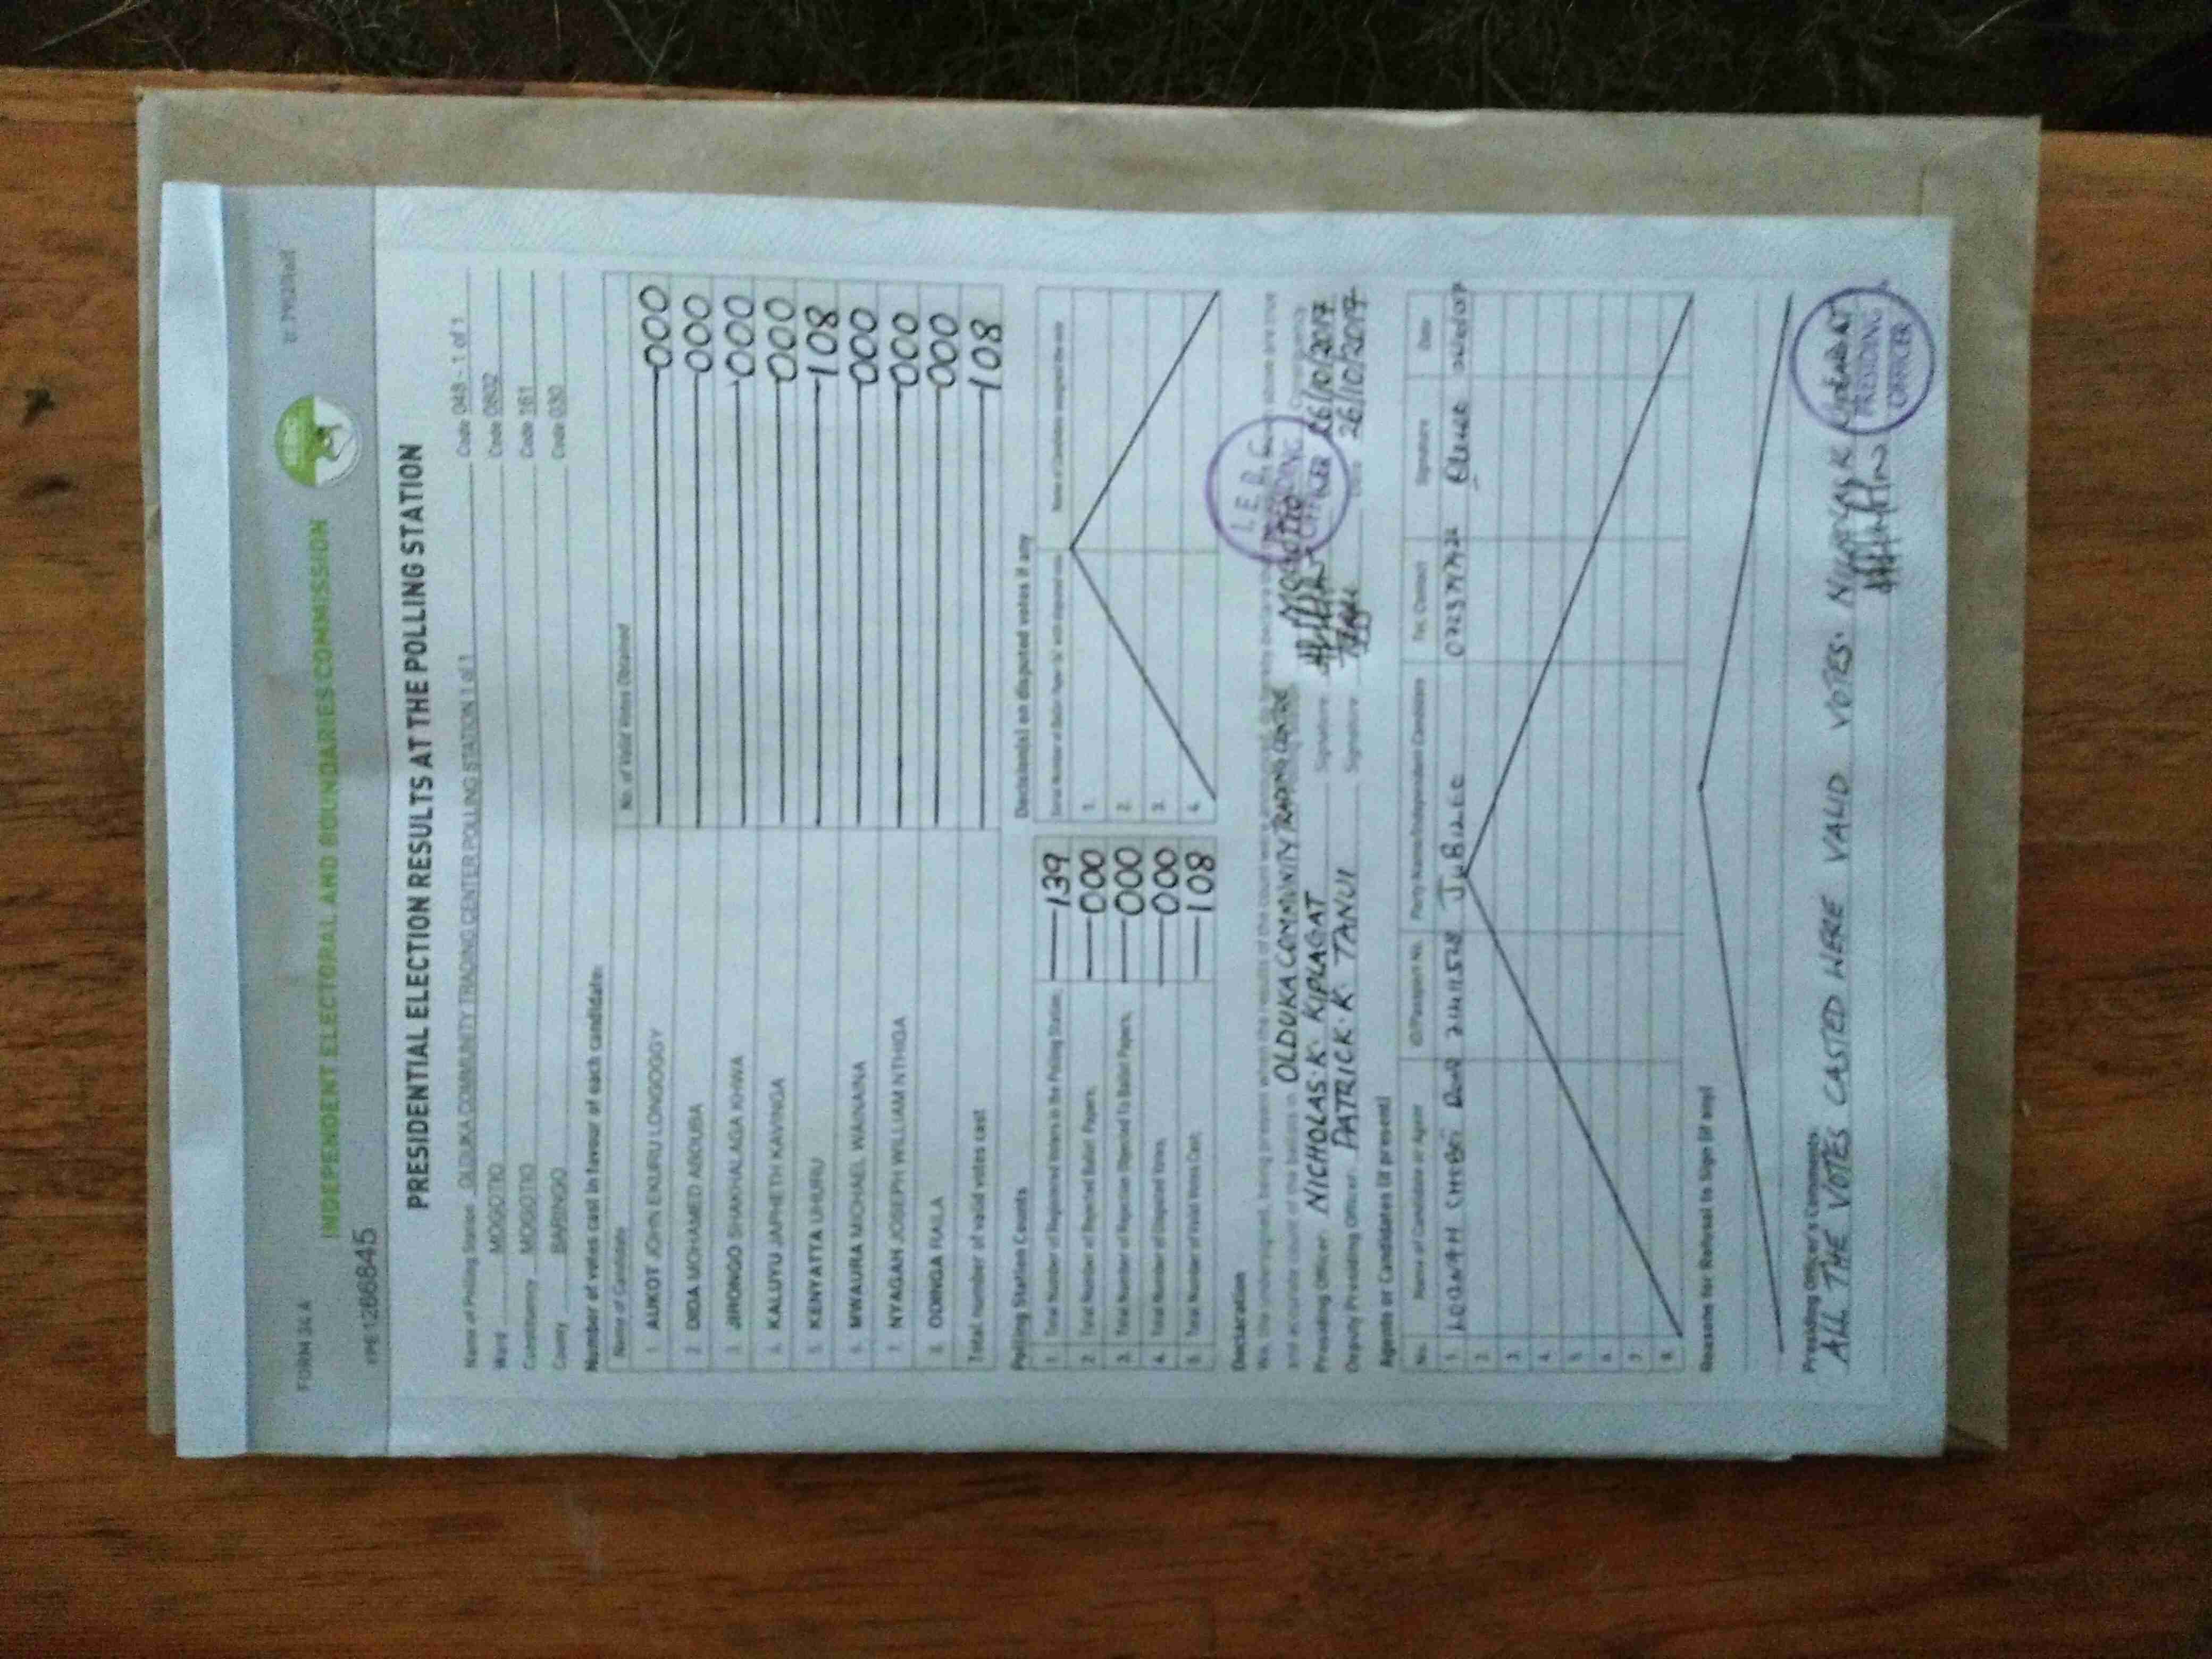 FORM 34 A
INDEPENDENT ELECTORAL AND BOUNDARIES COMMISSION
PRESIDENTIAL ELECTION RESULTS AT THE POLLING STATION
Name of Polling Station OLDUKA COMMUNITY TRADING CENTER POLLING STATION 1 of 1 Code 048 - 1 of 1
Ward MOGOTIO Code 0802
Constituency MOGOTIO Code 161
County BARINGO Code 030
Number of votes cast in favour of each candidate:
Name of Candidate No. of Valid Votes Obtained
1. AUKOT JOHN EKURU LONGOGGY 000
2. DIDA MOHAMED ABDUBA 000
3. JIRONGO SHAKHALAGA KHWA 000
4. KALUYU JAPHETH KAVINGA 000
5. KENYATTA UHURU 108
6. MWAURA MICHAEL WAINAINA 000
7. NYAGAH JOSEPH WILLIAM NTHIGA 000
8. ODINGA RAILA 000
Total number of valid votes cast 108
Polling Station Counts
1. Total Number of Registered Voters in the Polling Station 139
2. Total Number of Rejected Ballot Papers. 000
3. Total Number of Rejection Objected To Ballot Papers. 000
4. Total Number of Disputed Votes. 000
5. Total Number of Valid Votes Cast. 108
Decision(s) on disputed votes if any
1.
2.
3.
4.
Declaration
We, the undersigned, being present when the results of the count were announced
and accurate count of the ballots in OLDUKA COMMUNITY TRADING CENTRE MOGOTIO
Presiding Officer NICHOLAS. K. KIPLAGAT Signature 26/10/2017
Deputy Presiding Officer PATRICK. K. TANUI Signature 26/10/2017
I.E.B.C
PRESIDING OFFICER
Agents or Candidates (if present)
No. Name of Candidate or Agent ID/Passport No. Party Name/Independent Candidate Tel. Contact Signature Date
1. JUBILEE
2.
3.
4.
5.
6.
7.
8.
Reasons for Refusal to Sign (if any)
Presiding Officer's Comments
ALL THE VOTES CASTED HERE VALID VOTES.
PRESIDING OFFICER